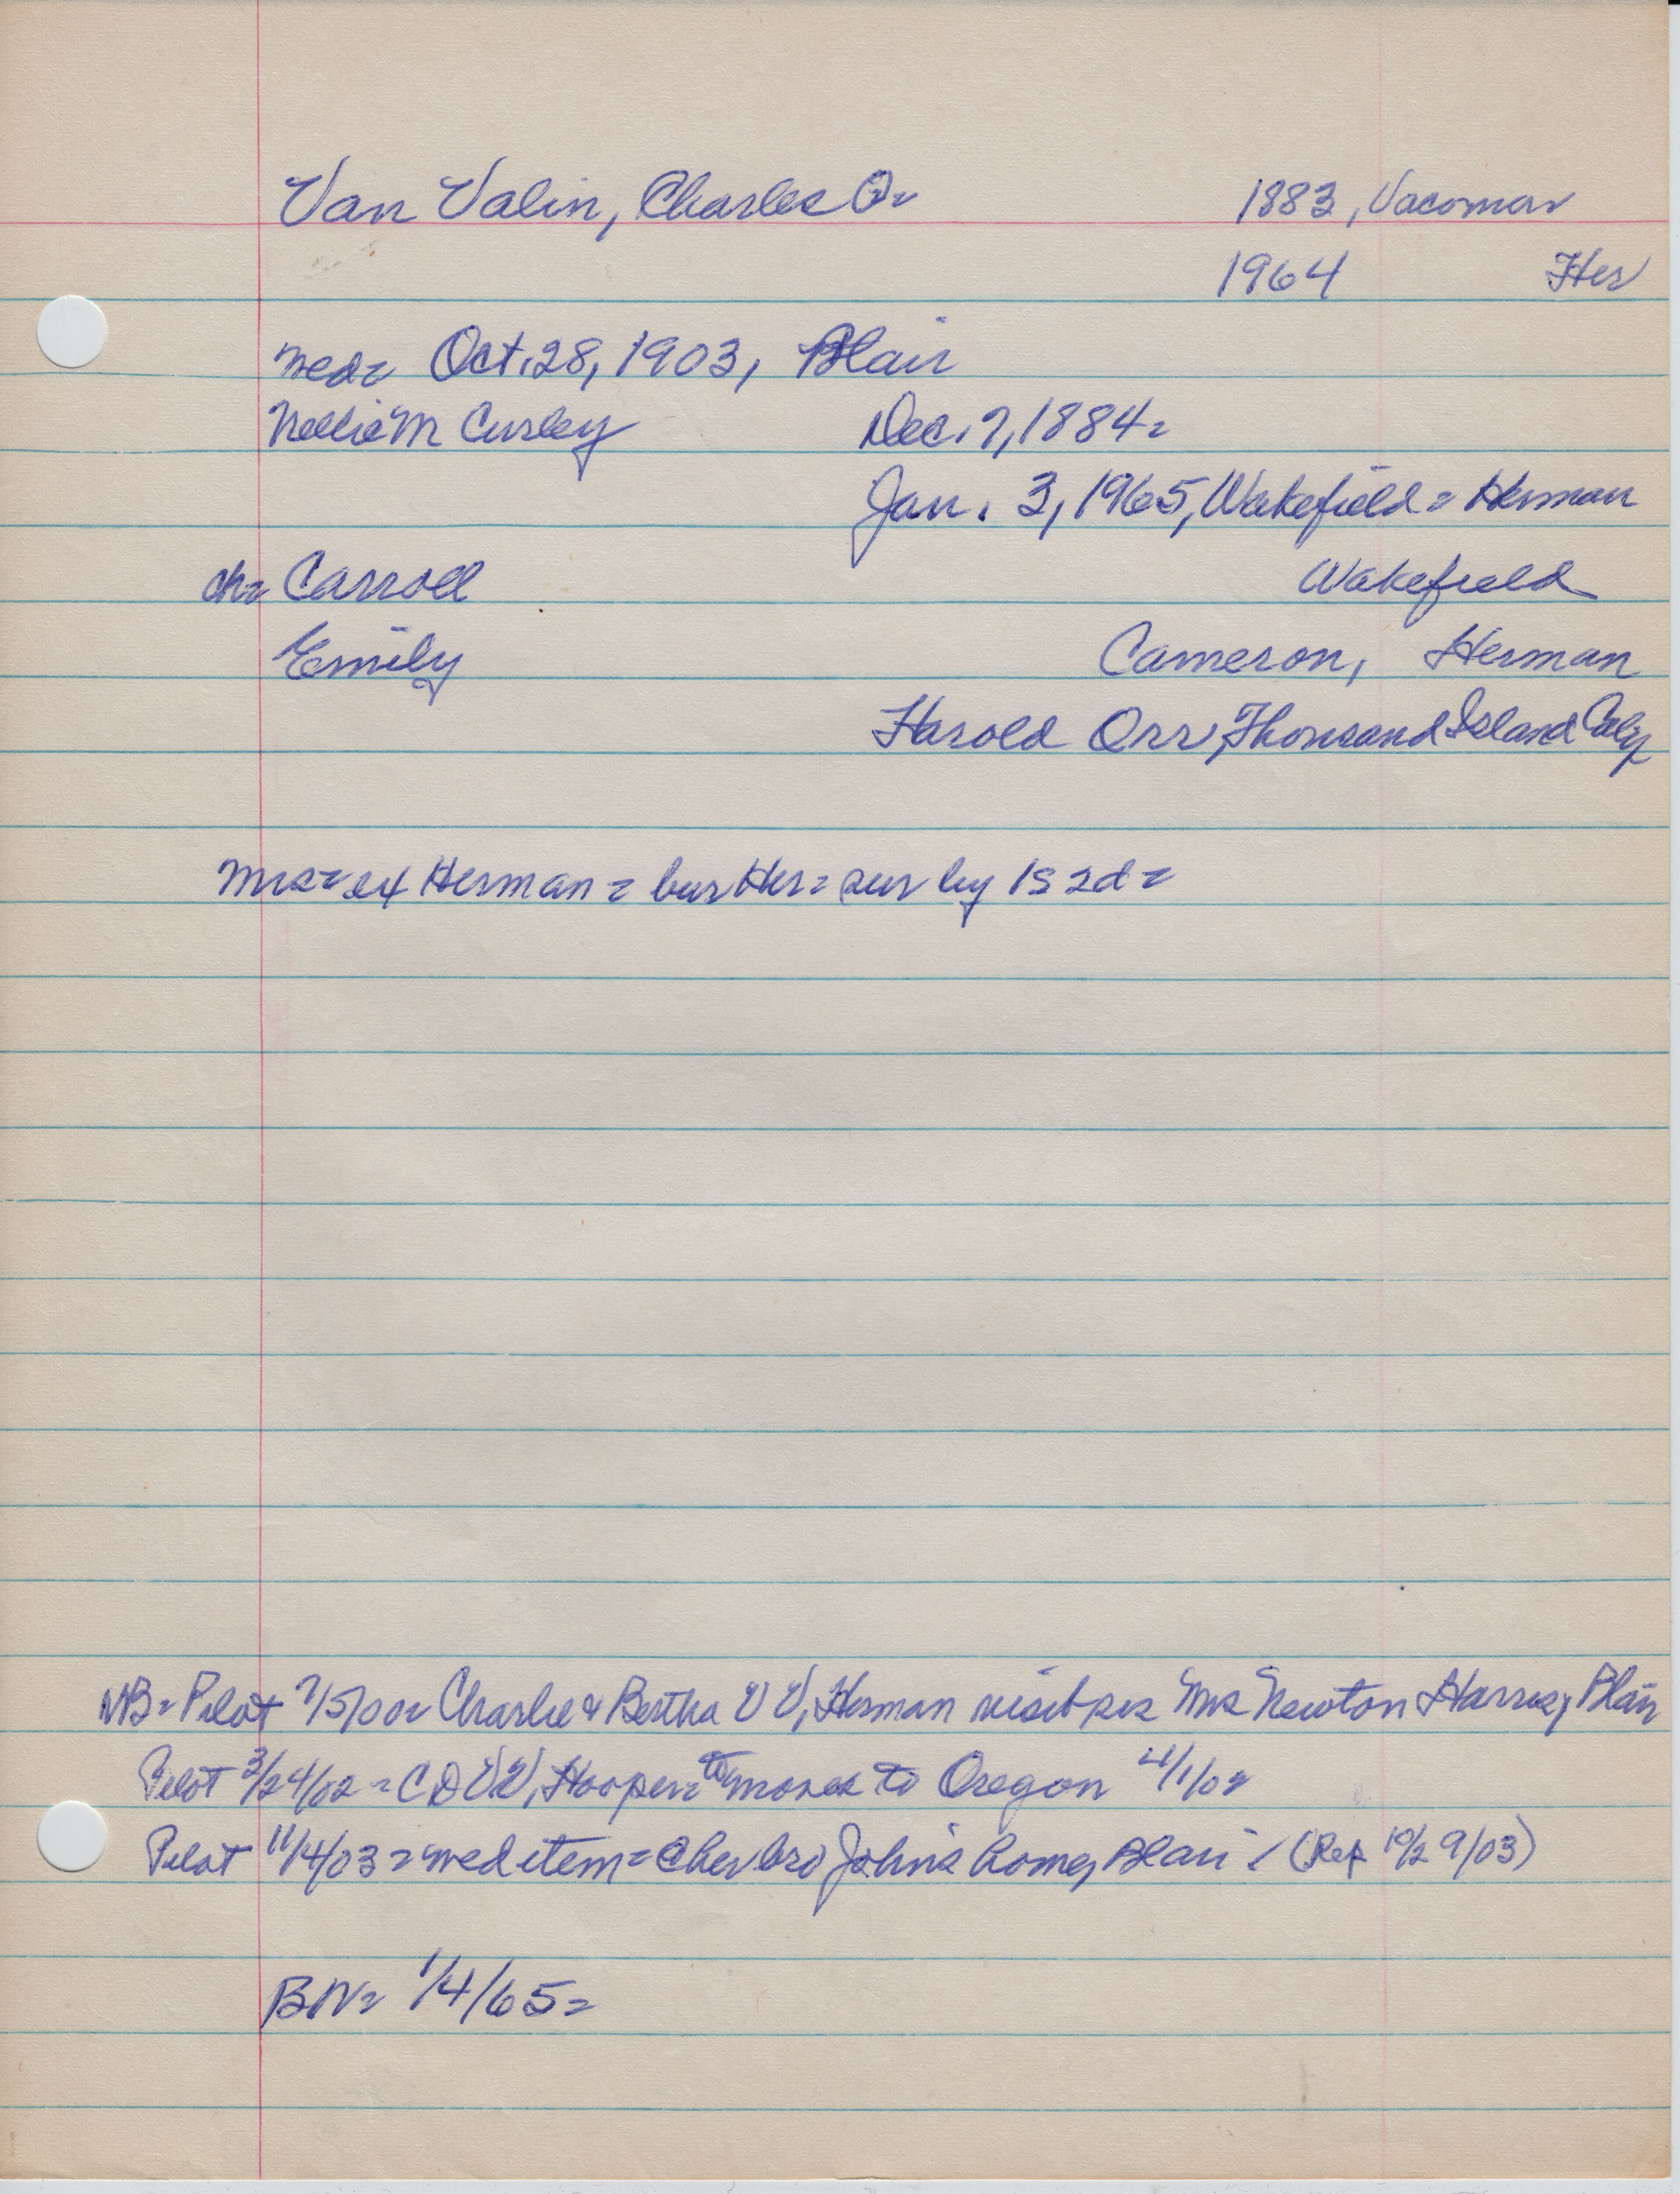 Van Valin, Charles D= 1883, Vacoma=
1964 Her
wed= Oct. 28, 1903, Blair
Nellie M Curley Dec. 7, 1884=
Jan. 3, 1965, Wakefield = Herman
ch= Carroll Wakefield
Emily Cameron, Herman
Harold Orr, Thousand Island Calif
Mrs= ex Herman = bur Her= sur by 1S 2d =
NB= Pilot 7/5/00= Charlie & Bertha VV, Herman visit sis Mrs Newton Harris, Blair
Pilot 3/24/02 = C D VV, Hooper= to moves to Oregon 4/1/02
Pilot 11/4/03 = wed item = bro John's home, Blair (Rep 10/29/03)
BN= 1/4/65=